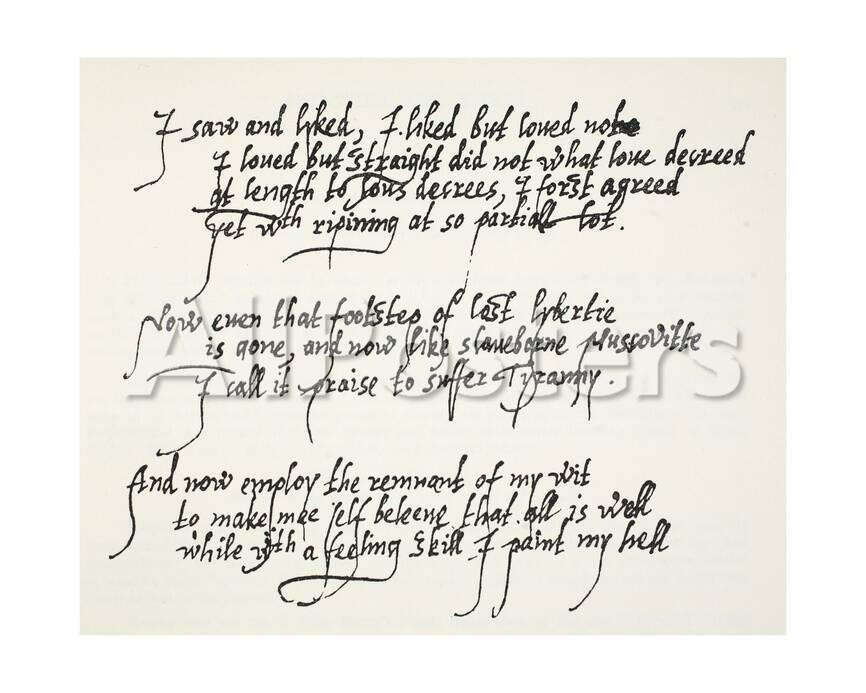 I saw and lyked, I liked but loued not
I loued but straight did not what loue decreed
at length to loues decrees, I forst agreed
yet wth ripining at so partiall lot.
Now euen that footstep of lost lybertie
is gone, and now like slaueborne Mussovitte
I call it praise to suffer Tyranny.
And now employ the remnant of my wit
to make mee self beleeue that all is well
while wth a feeling skill I paint my hell
AllPosters